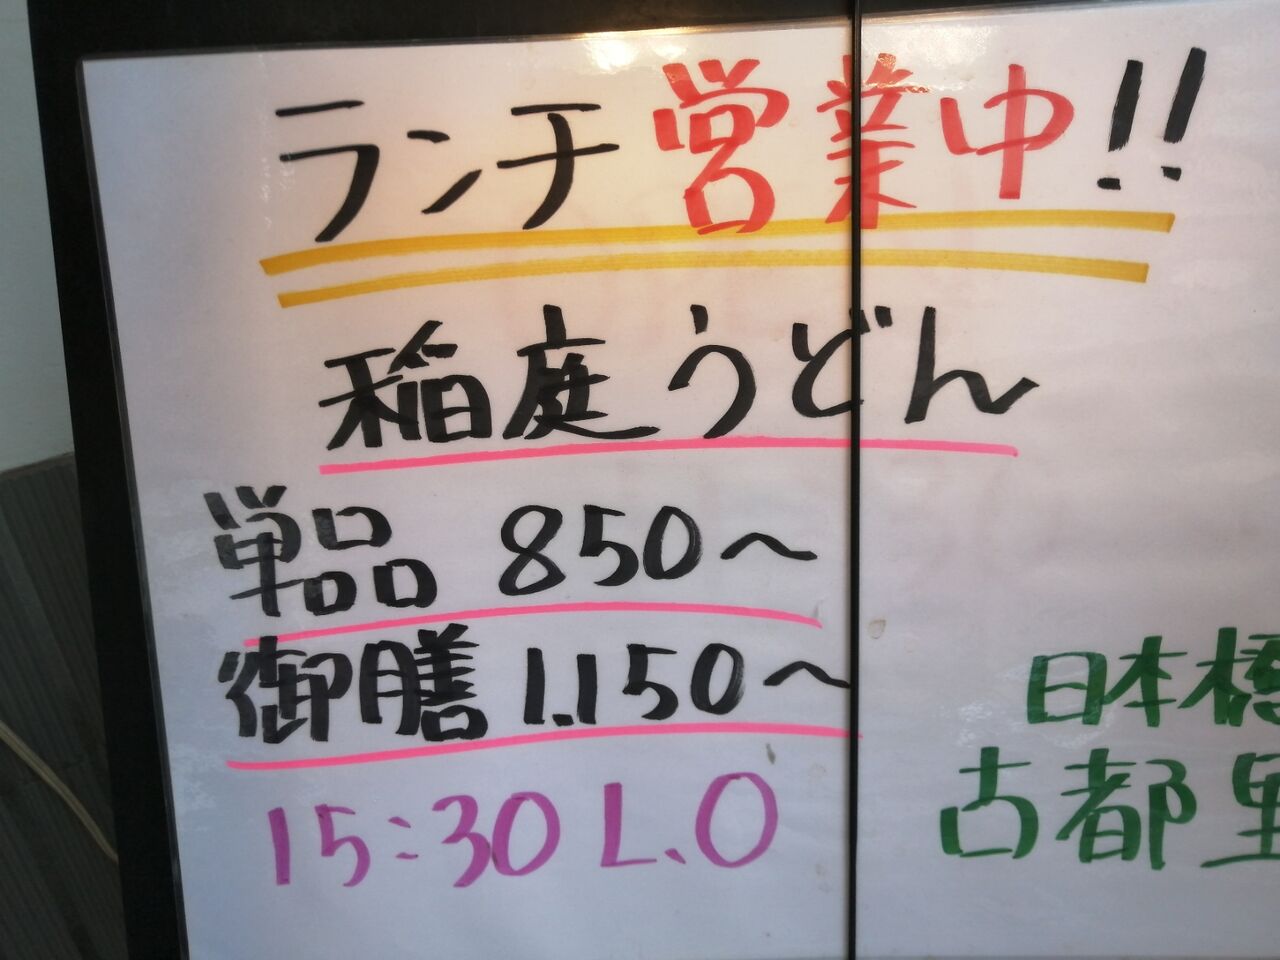 ランチ営業中!!
稲庭うどん
単品 850～
御膳 1.150～
15:30 L.O
日本橋
古都里